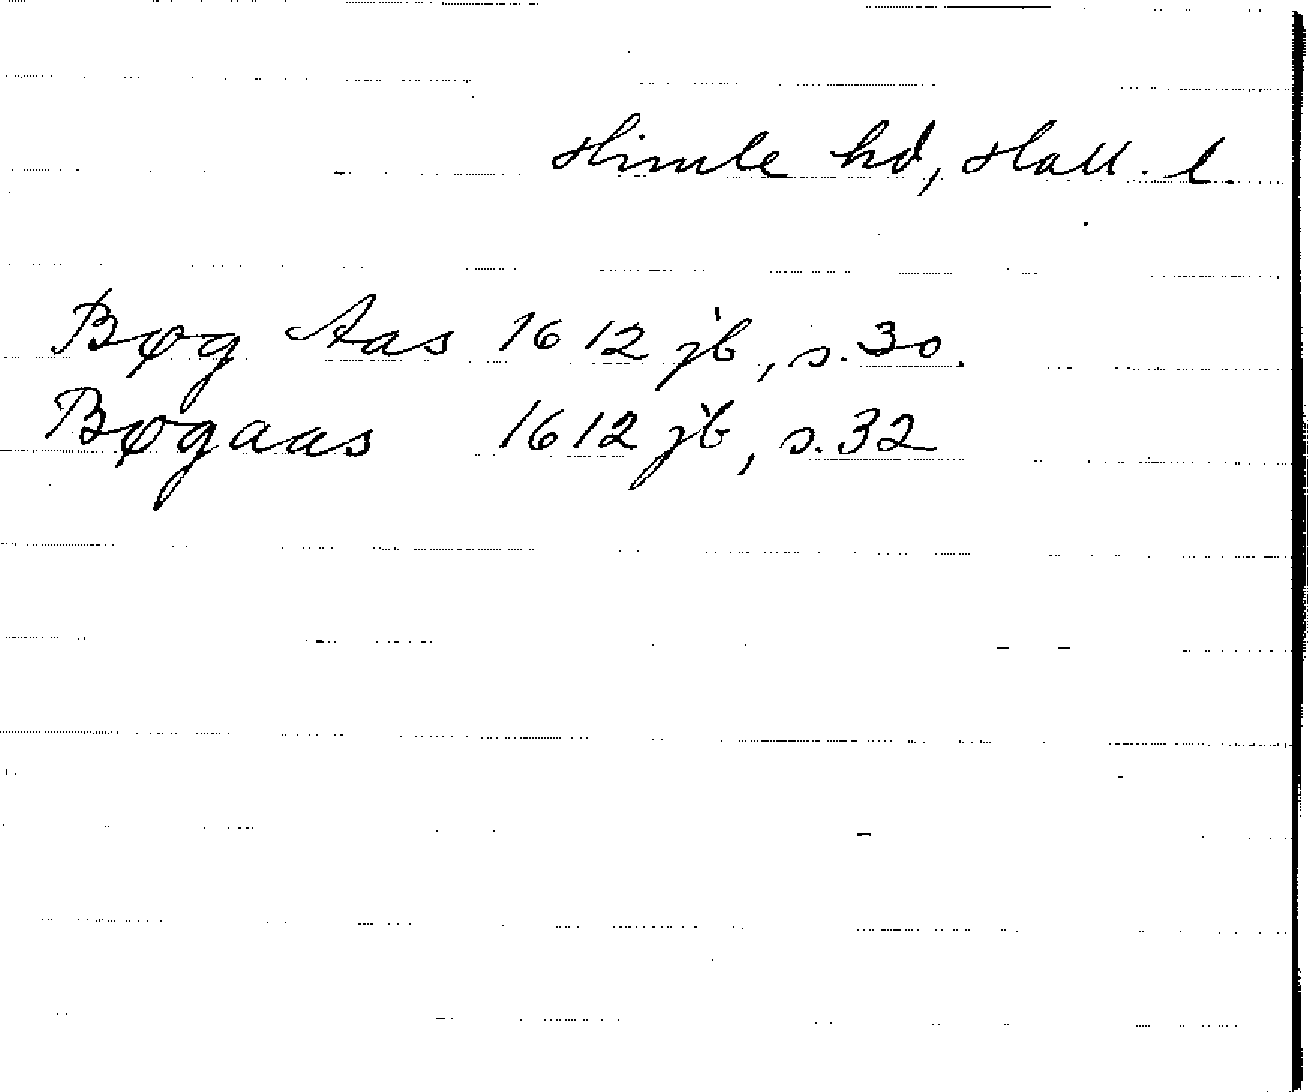 Himle hd, Hall. l.
Bøg Aas 1612 jb, s. 30.
Bøgaas 1612 jb, s. 32